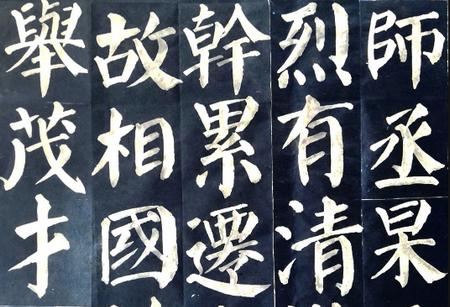 師丞杲
烈有清
幹累遷
故相國
舉茂才